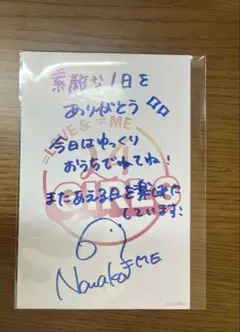 素敵な1日を
ありがとう
=LOVE & ≠ME
今日はゆっくり
おうちでねてね!
24
GIRLS
またあえる日を楽しみに
しています!
Nanaka ≠ME